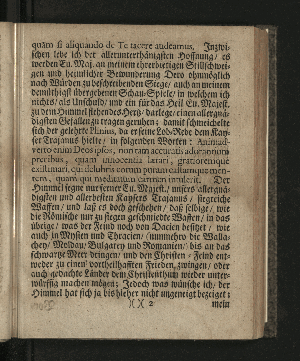 quàm si aliquando de Te tacere audeamus. Inzwi-
schen lebe ich der allerunterthänigsten Hoffnung / es
werden Eu. Maj. an meinem ehrerbietigen Stillschwei-
gen und heimlicher Bewunderung Dero ohnmöglich
nach Würden zu beschreibenden Siege / auch an meinem
demüthigst übergebener Schau-Spiele / in welchem ich
nichts / als Unschuld / und ein für das Heil Eu. Majest.
zu dem Himmel stehendes Herz / darlege / einen allergnä-
digsten Gefallen zu tragen geruhen; damit schmeichelte
sich der gelehrte Plinius, da er seine Lob-Rede dem Kay-
ser Trajanus hielte / in folgenden Worten: Animad-
verto enim Deos ipsos, non tam accuratis adorantium
precibus, quam innocentiâ lætari, gratioremque
existimari, qui delubris eorum puram castamque men-
tem, quam qui meditatum carmen intulerit. Der
Himmel segne nur ferner Eu. Majest. / unsers allergnä-
digsten und allerbesten Kaysers Trajanus / siegreiche
Waffen / und laß es doch geschehen / daß selbige / wie
die Römische nur zu siegen geschmiedete Waffen / in das
übrige / was der Feind noch von Dacien besitzt / wie
auch in Mysien und Thracien / (nunmehro die Walla-
chey / Moldau / Bulgarey und Romanien) bis an das
schwarze Meer dringen / und den Christen-Feind ent-
weder zu einem vortheilhafften Frieden zwingen / oder
auch gedachte Länder dem Christenthum wieder unter-
würffig machen mögen; Jedoch was wünsche ich / der
Himmel hat sich ja bishieher nicht ungeneigt bezeiget;
)( )( 2 mein